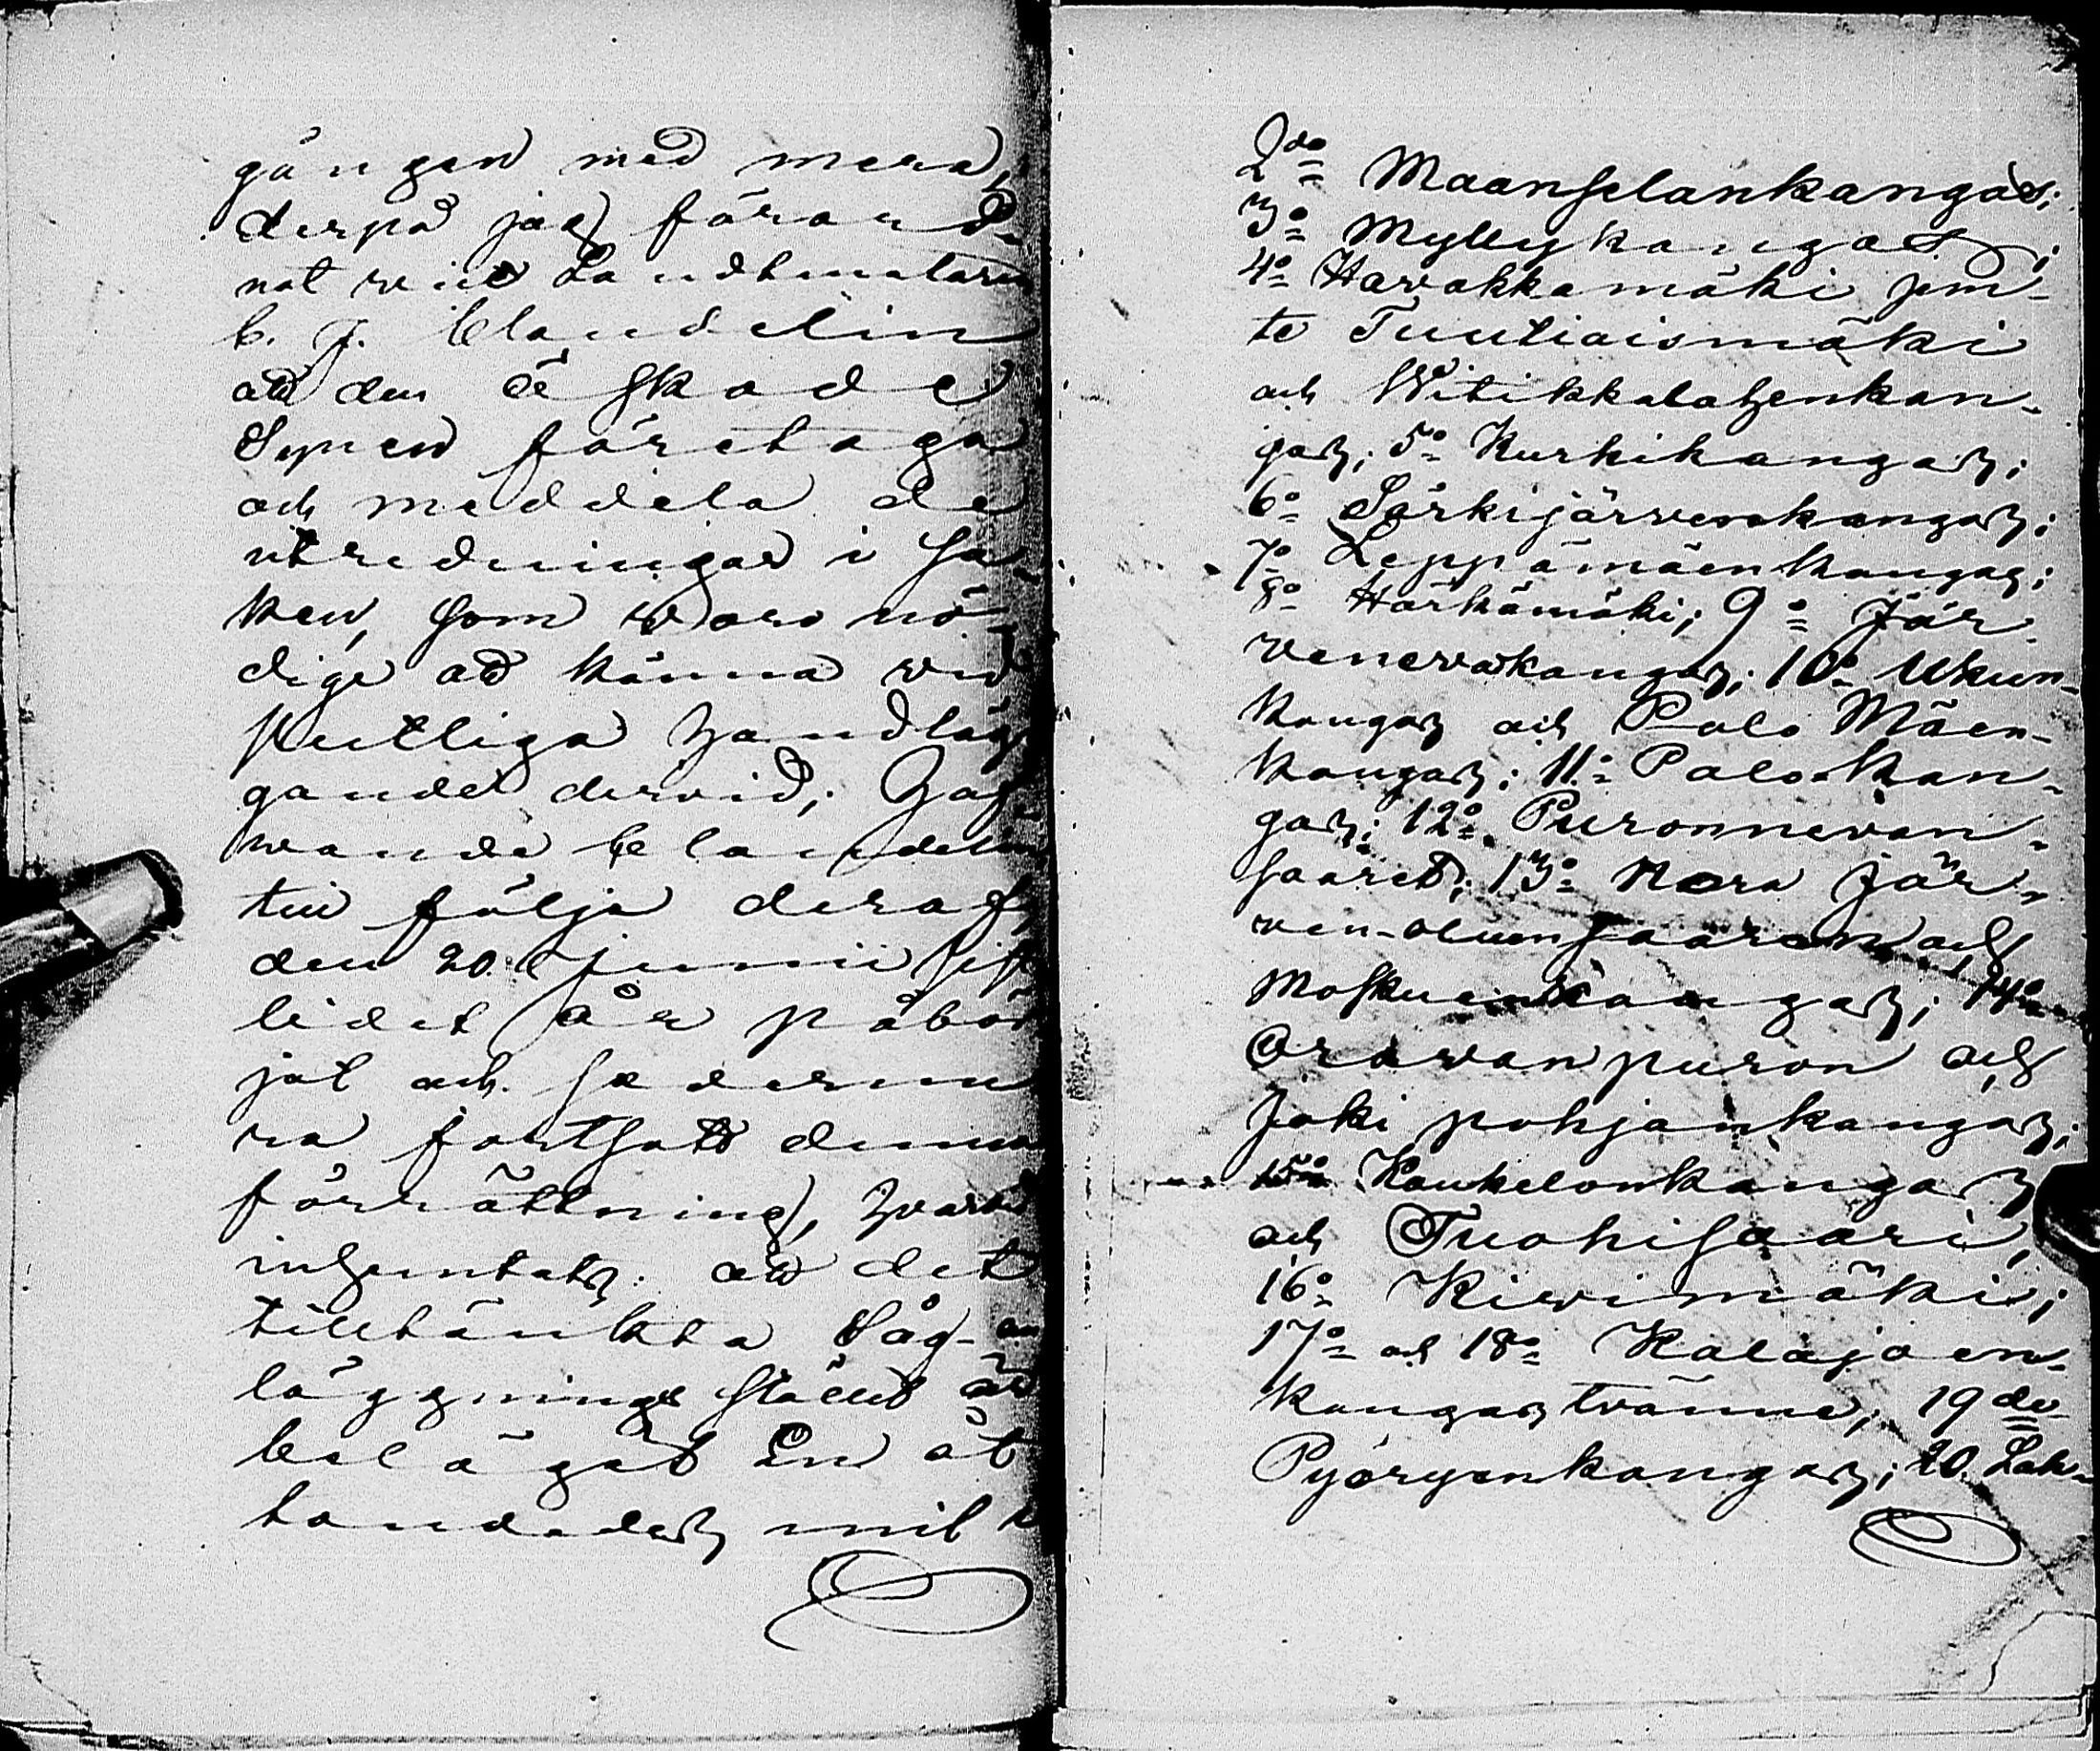 gången med mera,
derpå jag förord-
nat vice Landtmätaren
C. J. Claudelin
att den äskade
Synen företaga
och meddela de
utredningar i sa-
ken, som voro nö-
dige att känna vid
slutliga handläg-
gandet dervid; Hög-
wande Claudelin
till följe deraf,
den 20 Junii sist
lidet år påbör
jat och sedermå
ra fortsatt denna
förrättning, hvarvid
inhemtats: att det
tilltänkta Såg-an
läggnings stället är
beläget En åt
tondedels mil
2do Maanselankangas;
3o Myllykangas;
4o Harakkamäki jem-
te Tuuliaismäki
och Witikkalahenkan-
gas; 5o Kurkikangas;
6o Särkijärvenkangas;
7o Leppämäenkangas;
8o Härkämäki; 9o Jär-
venevakangas; 10o Ukun-
kangas och Palo Mäen-
kangas; 11o Palo-kan-
gas; 12o Puronnevan-
saaret; 13o Nora Jär-
ven-oluen saaran och
Moskuankangas; 14o
Oravanpuron och
Joki pohjankangas;
15o Koukelonkangas
och Tuohisaari,
16o Kivimäki;
17o och 18o Kalajoen-
kangas tvänne; 19de
Pyöryenkangas; 20 Lak-